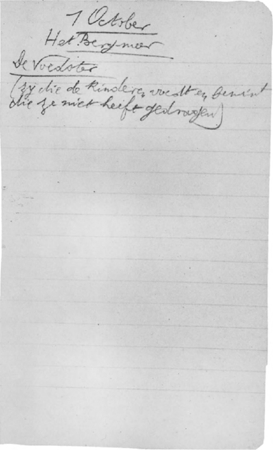 1 October
Het Bergmeer
De Voedster
(zy die de kinderen voedt en bemint
die ze niet heeft gedragen)